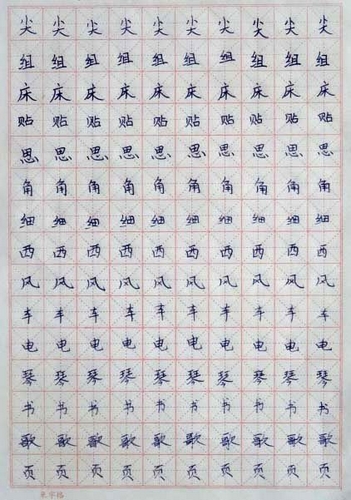 尖尖尖尖尖尖尖尖尖尖
组组组组组组组组组组
床床床床床床床床床床
贴贴贴贴贴贴贴贴贴贴
思思思思思思思思思思
角角角角角角角角角角
细细细细细细细细细细
西西西西西西西西西西
风风风风风风风风风风
车车车车车车车车车车
电电电电电电电电电电
琴琴琴琴琴琴琴琴琴琴
书书书书书书书书书书
歌歌歌歌歌歌歌歌歌歌
页页页页页页页页页页
米字格